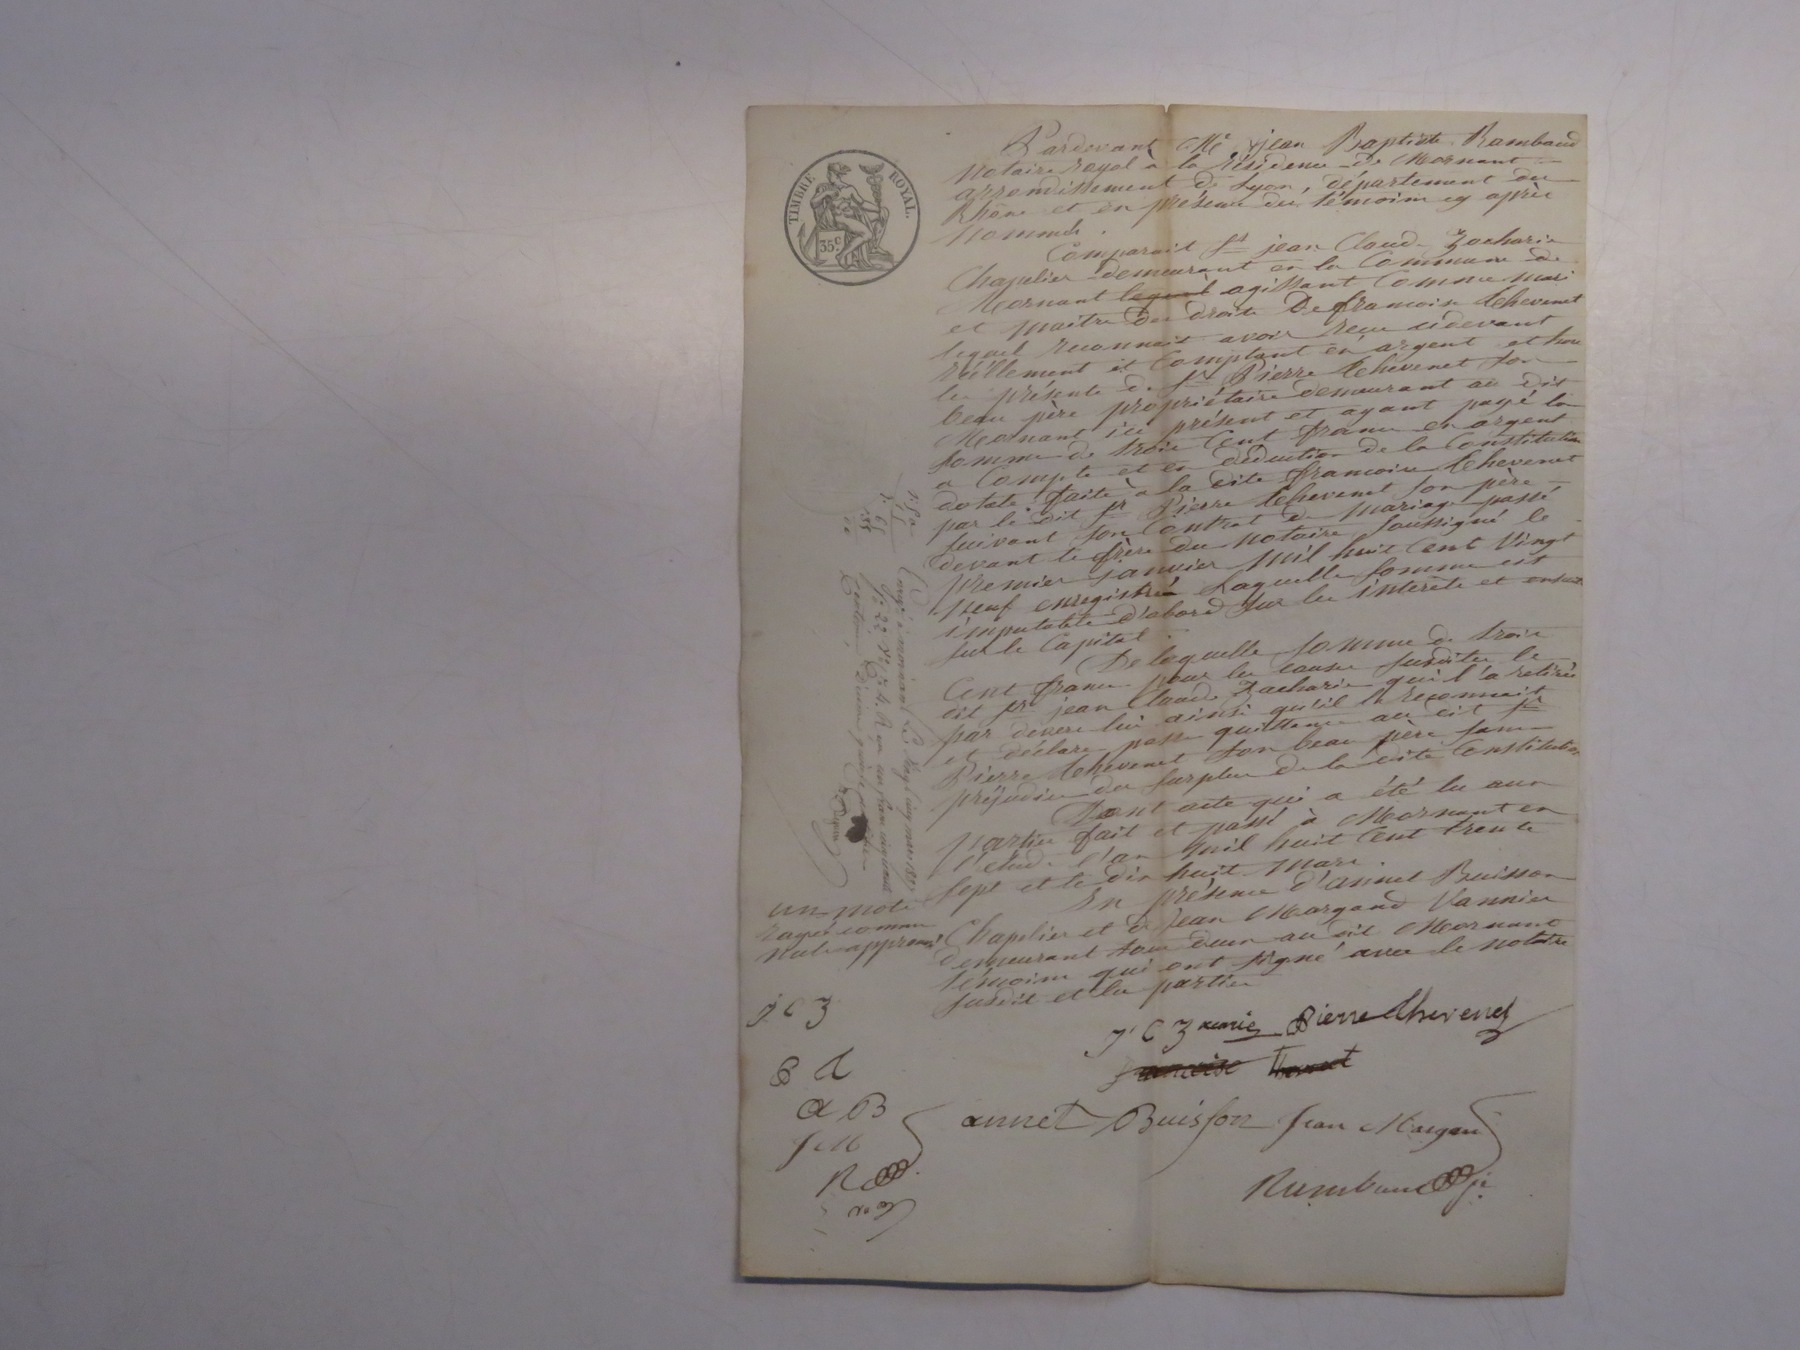 TIMBRE ROYAL.
35 c.
Pardevant Me jean Baptiste Rambaud
Notaire royal à la résidence de Mornant
arrondissement de Lyon, département du
Rhône et en présence des témoins cy après
nommés.
Comparait sr jean Claude Zacharie
Chapelier demeurant en la Commune de
Mornant agissant Comme mari
et maitre des droits De francoise thevenet
lequel reconnait avoir reçu cidevant
réellement et Comptant en argent et hors
les présentes de sr Pierre thevenet son
beau père propriétaire demeurant au dit
Mornant ici présent et ayant payé la
somme de trois Cent francs en argent
a Compte et en déduction de la Constitution
dotale faite à la dite francoise thevenet
par le dit sr Pierre thevenet son père
suivant son Contrat de mariage passé
devant le frère du notaire soussigné le
premier janvier mil huit Cent Vingt
neuf enregistré Laquelle somme est
imputable d'abord sur les intérêts et ensuite
sur le Capital.
De laquelle somme de trois
Cent francs pour les causes susdites le
dit sr jean Claude Zacharie qui l'a retirée
par devers lui ainsi qu'il le reconnait
et déclare passe quittance au dit sr
Pierre thevenet son beau père sans
préjudice du surplus de la dite Constitution
Dont acte qui a été lu aux
parties fait et passé à Mornant en
l'étude l'an Mil huit Cent trente
sept et le dix huit mars.
En présence d'annet Buisson
Chapelier et de Jean Margand Vannier
demeurant tous deux au dit Mornant
témoins qui ont signé avec le notaire
susdit et les parties
un mot
rayé comme
nul approuvé
J C Z
P t
a B
J M
R
J C Zacarie Pierre thevenet
annet Buisson Jean Margan
Rambaud